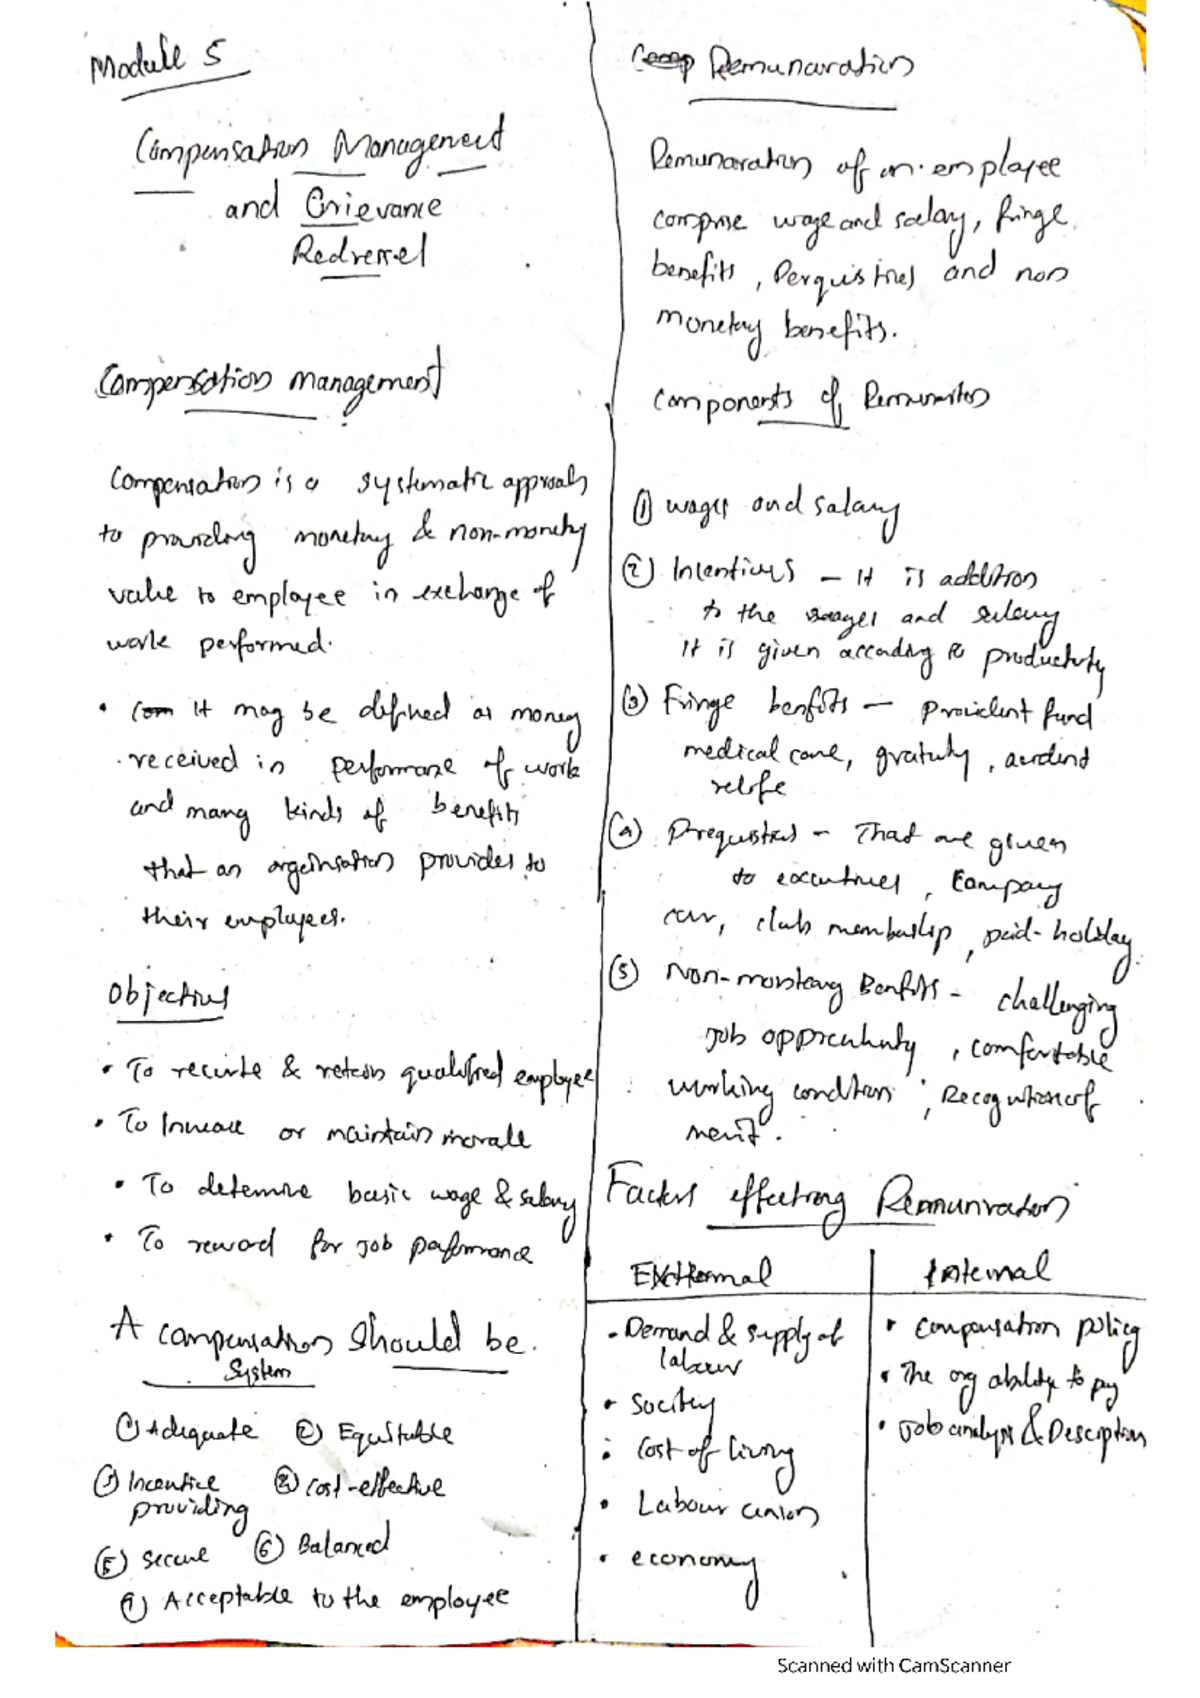 Module 5
Compensation Management
and Grievance
Redressel
Compensation management
Compensation is a systematic approach
to providing monetary & non-monetry
value to employee in exchange of
work performed.
• Com It may be defined as money
received in performance of work
and many kinds of benefits
that an orgainsation provides to
their employees.
Objectives
• To recurite & retain qualified employee
• To Increase or maintain morale
• To determine basic wage & salary
• To reward for Job performance
A compensation should be.
System
① Adequate ② Equitable
③ Incentive ④ cost-effective
providing
⑤ secure ⑥ Balanced
⑦ Acceptable to the employee
Comp Remunaration
Remunaration of an employee
comprise wage and salary, fringe
benefits, Perquisites and non
monetary benefits.
Components of Remunration
① wages and salary
② Incentives - It is addition
to the wages and salary
It is given according to productivity
③ Fringe benfits - provident fund
medical care, gratuity, accident
relife
④ Prequisties - That are given
to executives, Company
car, club membership, paid-holiday
⑤ Non-monetary Benfits - challenging
Job opprcutunity, comfortable
working condition, Recognition of
merit.
Factors effecting Remunration
External
Internal
- Demand & supply of
labour
• Socitey
• Cost of living
• Labour union
• economy
• compensation policy
• The org ability to pay
• Job analysis & Description
Scanned with CamScanner